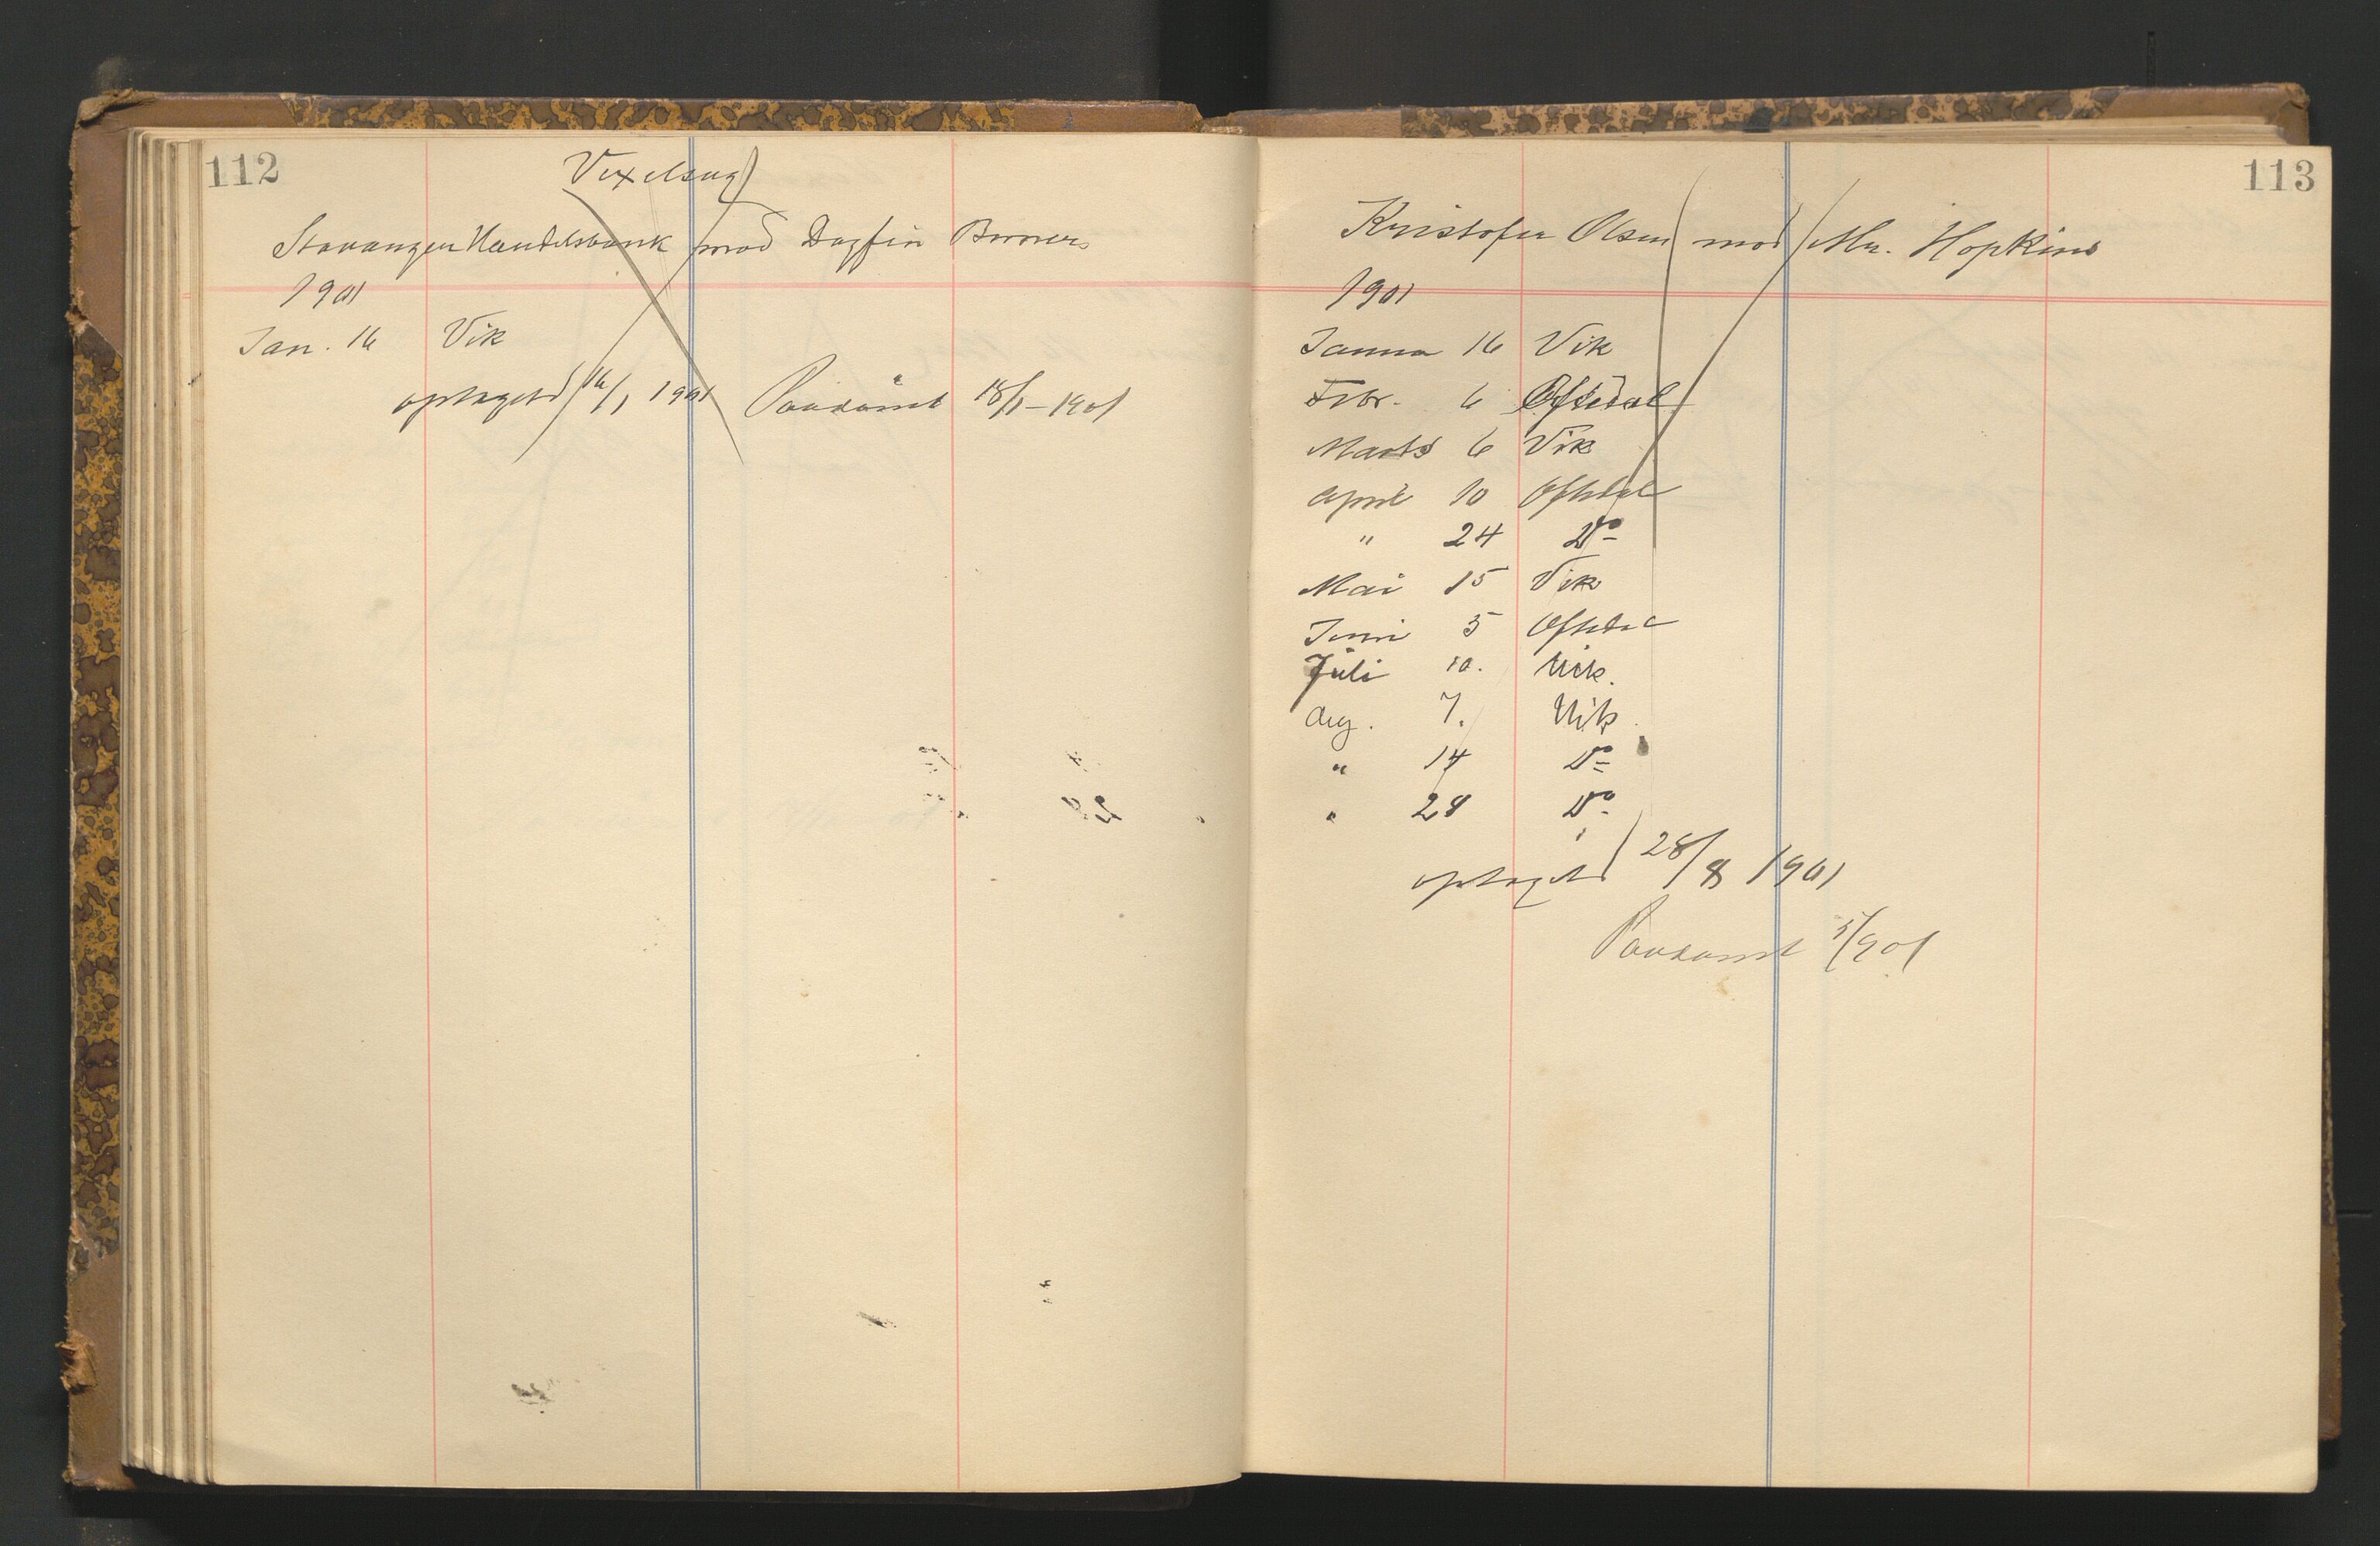 112
Vexelsag
Stavanger Handelsbank mod Dagfin
1901
Jan. 16 Vik
optaget 16/1 1901 Paadømt 18/1-1901
113
Kristofer Olsen mod Mr. Hopkins
1901
Janua 16 Vik
Febr. 6 Oftedal
Marts 6 Vik
April 10 Oftedal
" 24 Do
Mai 15 Vik
Juni 5 Oftedal
Juli 10. Vik.
Aug. 7. Vik
" 14 Do
" 28 Do
optaget 28/8 1901
Paadømt